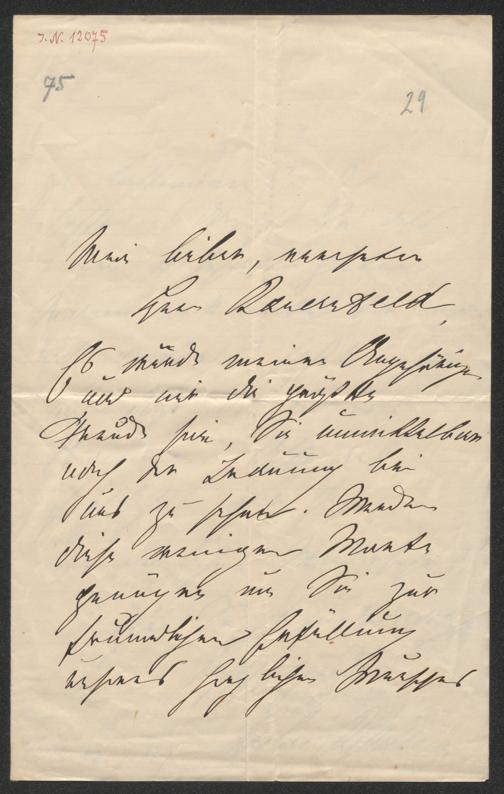 I. N. 12075
75
29
Mein lieber, verehrter
Herr Bauernfeld,
Es würde meinen Angehörigen
und mir die größte
Freude sein, Sie unmittelbar
nach der Trauung bei
uns zu sehen. Werden
diese wenigen Worte
genügen um Sie zur
freundlichen Erfüllung
unseres herzlichen Wunsches